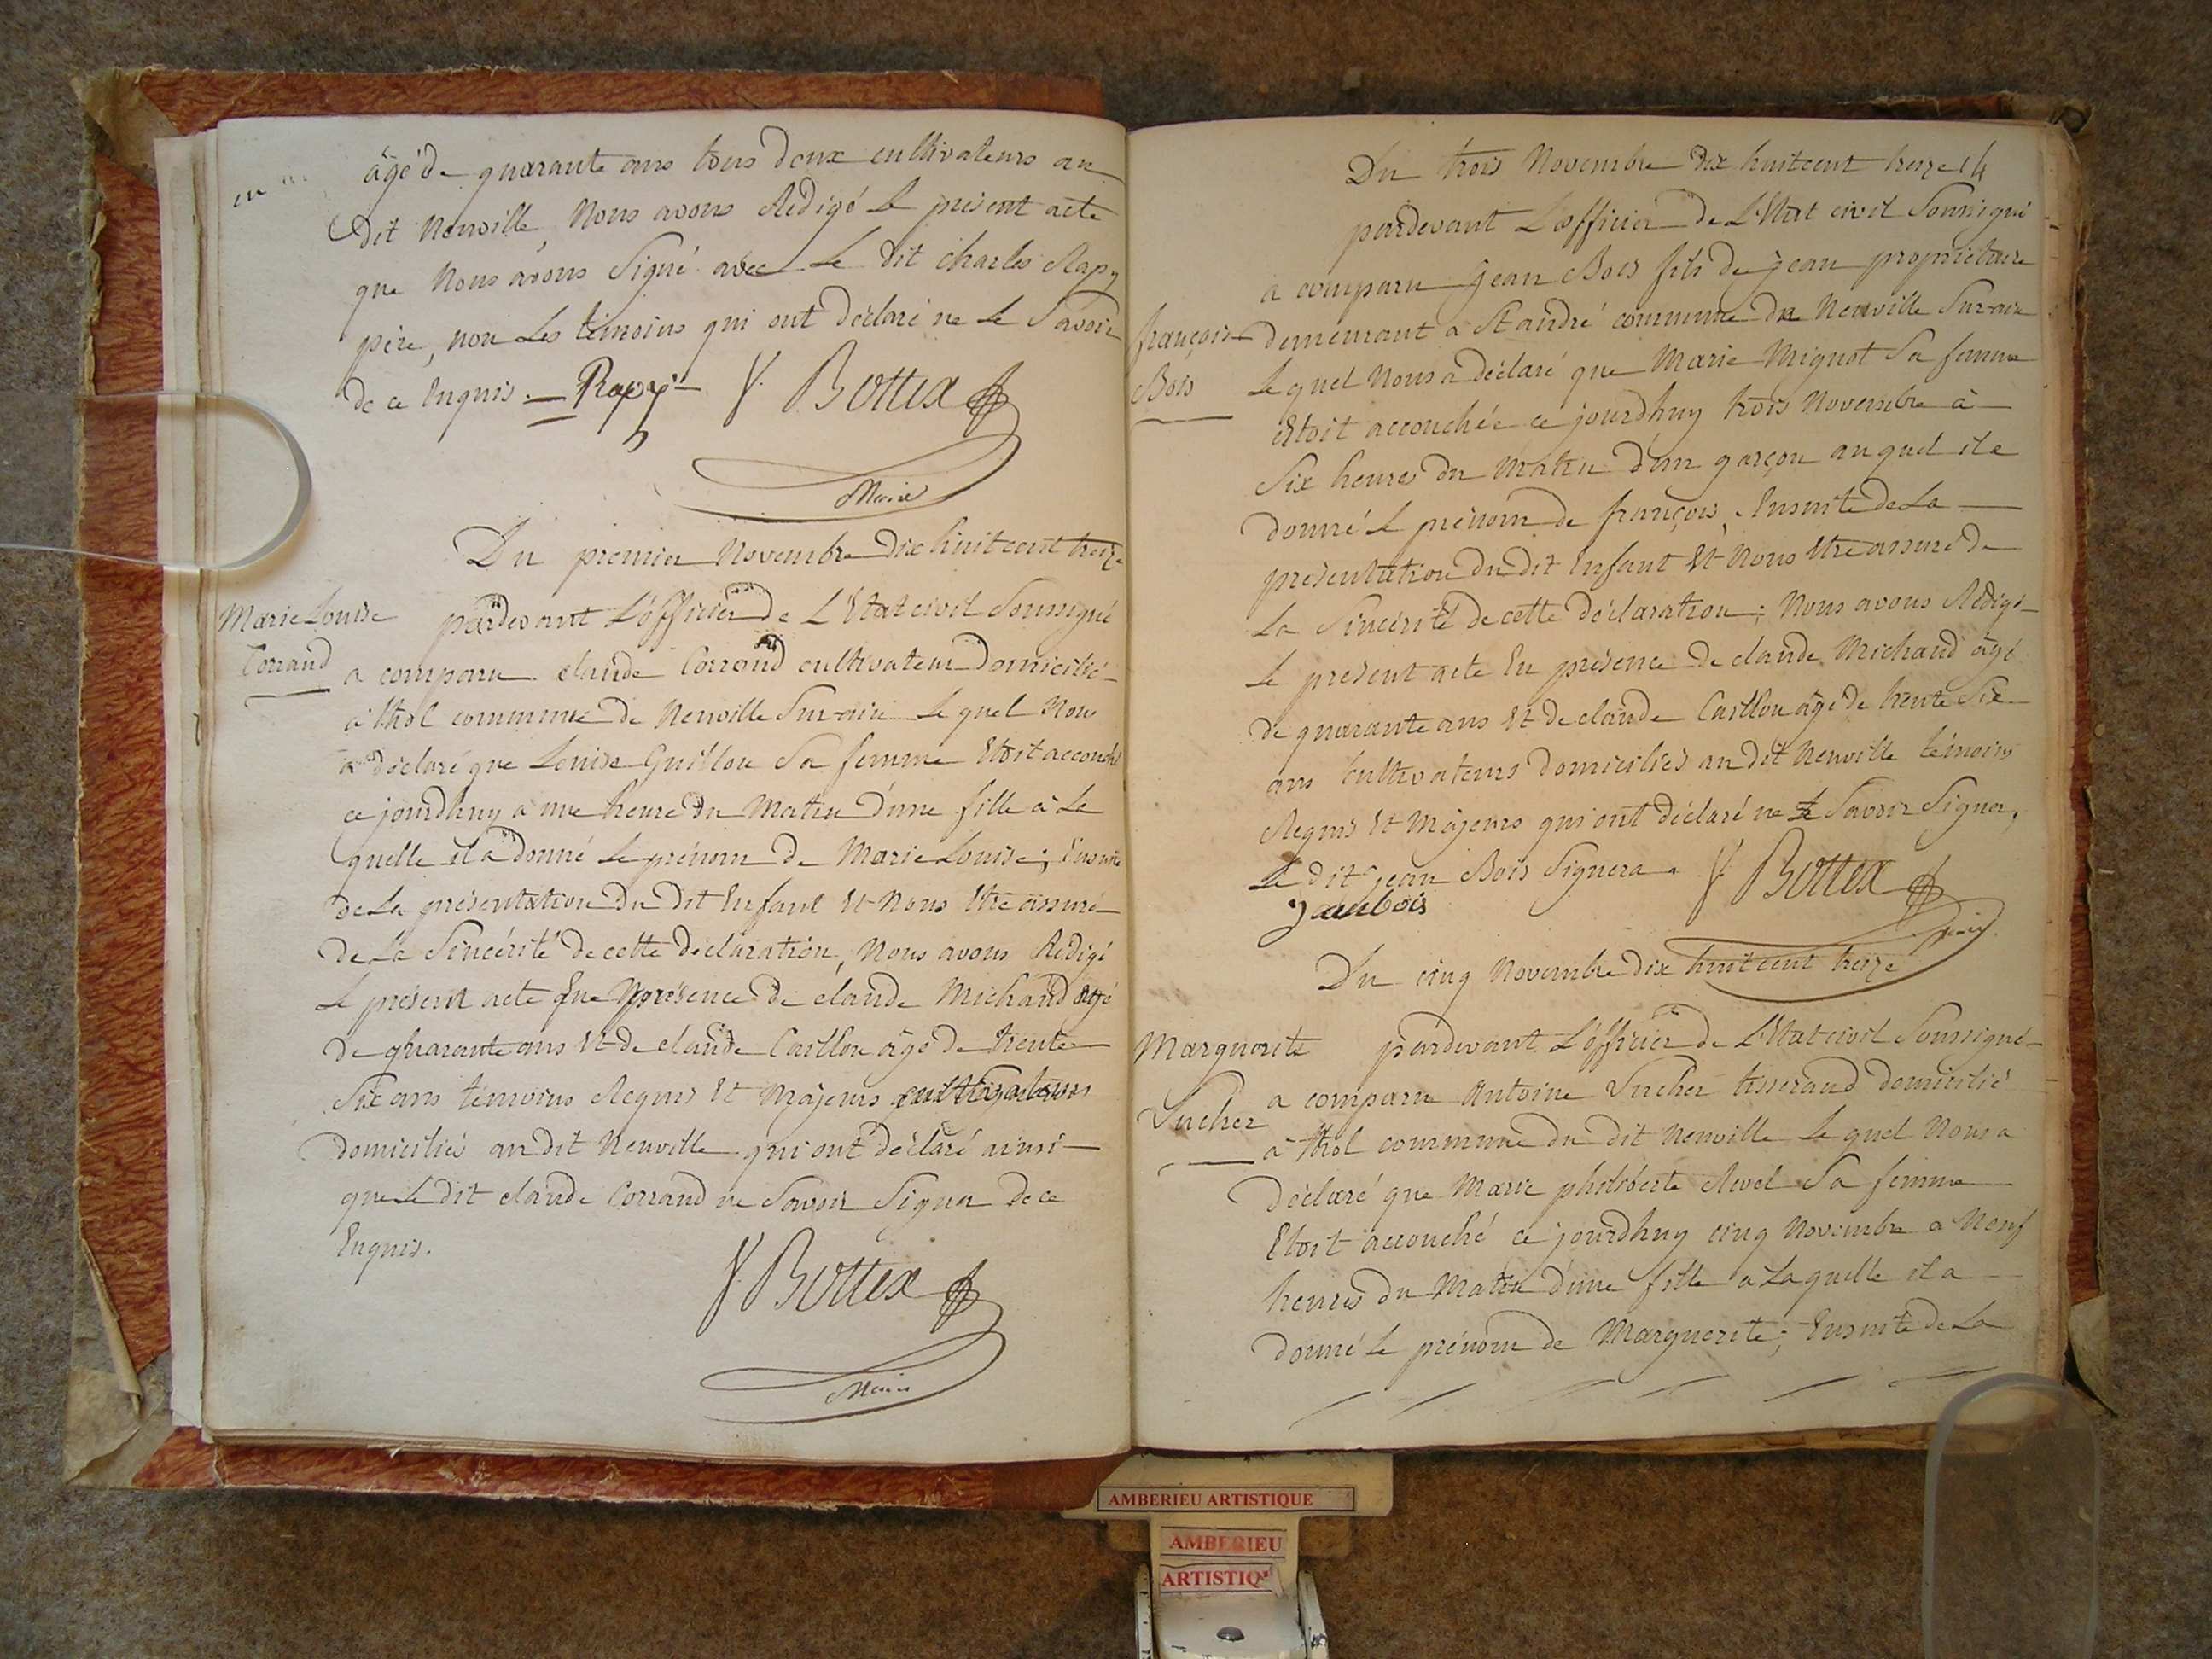 âgé de quarante ans tous deux cultivateurs au
dit Neuville, Nous avons Redigé Le présent acte
que Nous avons Signé avec Le dit charles Rapy
père, non Les témoins qui ont déclaré ne Le Savoir
de ce Enquis. — Rapy — Y. Bottex
Maire
Du premier Novembre dix huit cent treize
Marie Louise
Corrand
pardevant L'officier de L'Etat civil Soussigné
a comparu claude Corrand cultivateur Domicilié
à thol commune de Neuville Sur ain Le quel Nous
a déclaré que Louise Guillon Sa femme Etoit accouché
ce jourdhuy a une heure du Matin d'une fille à La
quelle il a donné Le prénom de Marie Louise; Ensuite
de La présentation du dit Enfant Et Nous Etre assuré
de La Sincérité de cette déclaration, Nous avons Redigé
Le présent acte En présence de claude Michaud âgé
de quarante ans Et de claude Caillon âgé de trente
Six ans témoins Requis Et Majeurs cultivateurs
domiciliés au dit Neuville qui ont déclaré ainsi
que Le dit claude Corrand ne Savoir Signer de ce
Enquis.
Y. Bottex
Maire
Du trois Novembre dix huit cent treize 14
pardevant L'officier de L'Etat civil Soussigné
a comparu Jean Bois fils de Jean propriétaire
françois
Bois
demeurant à St andré commune de Neuville Sur ain
Le quel Nous a déclaré que Marie Mignot Sa femme
Etoit accouchée ce jourdhuy trois Novembre à
Six heures du Matin d'un garçon au quel il a
donné Le prénom de françois, Ensuite de La
présentation du dit Enfant Et Nous Etre assuré de
La Sincérité de cette déclaration; Nous avons Rédigé
Le présent acte En présence de claude Michaud âgé
de quarante ans Et de claude Caillon âgé de trente Six
ans Cultivateurs domiciliés au dit Neuville témoins
Requis Et Majeurs qui ont déclaré ne Savoir Signer.
Le dit Jean Bois Signera. Y. Bottex
jean bois
Maire
Du cinq Novembre dix huit cent treize
Marguerite
Sucher
pardevant L'officier de L'Etat civil Soussigné
a comparu Antoine Sucher tisserand domicilié
à thol commune du dit Neuville Le quel Nous a
déclaré que Marie philiberte Revel Sa femme
Etoit accouché ce jourdhuy cinq Novembre a Neuf
heures du Matin d'une fille a Laquelle il a
donné Le prénom de Marguerite; Ensuite de La
AMBERIEU ARTISTIQUE
AMBERIEU
ARTISTIQ